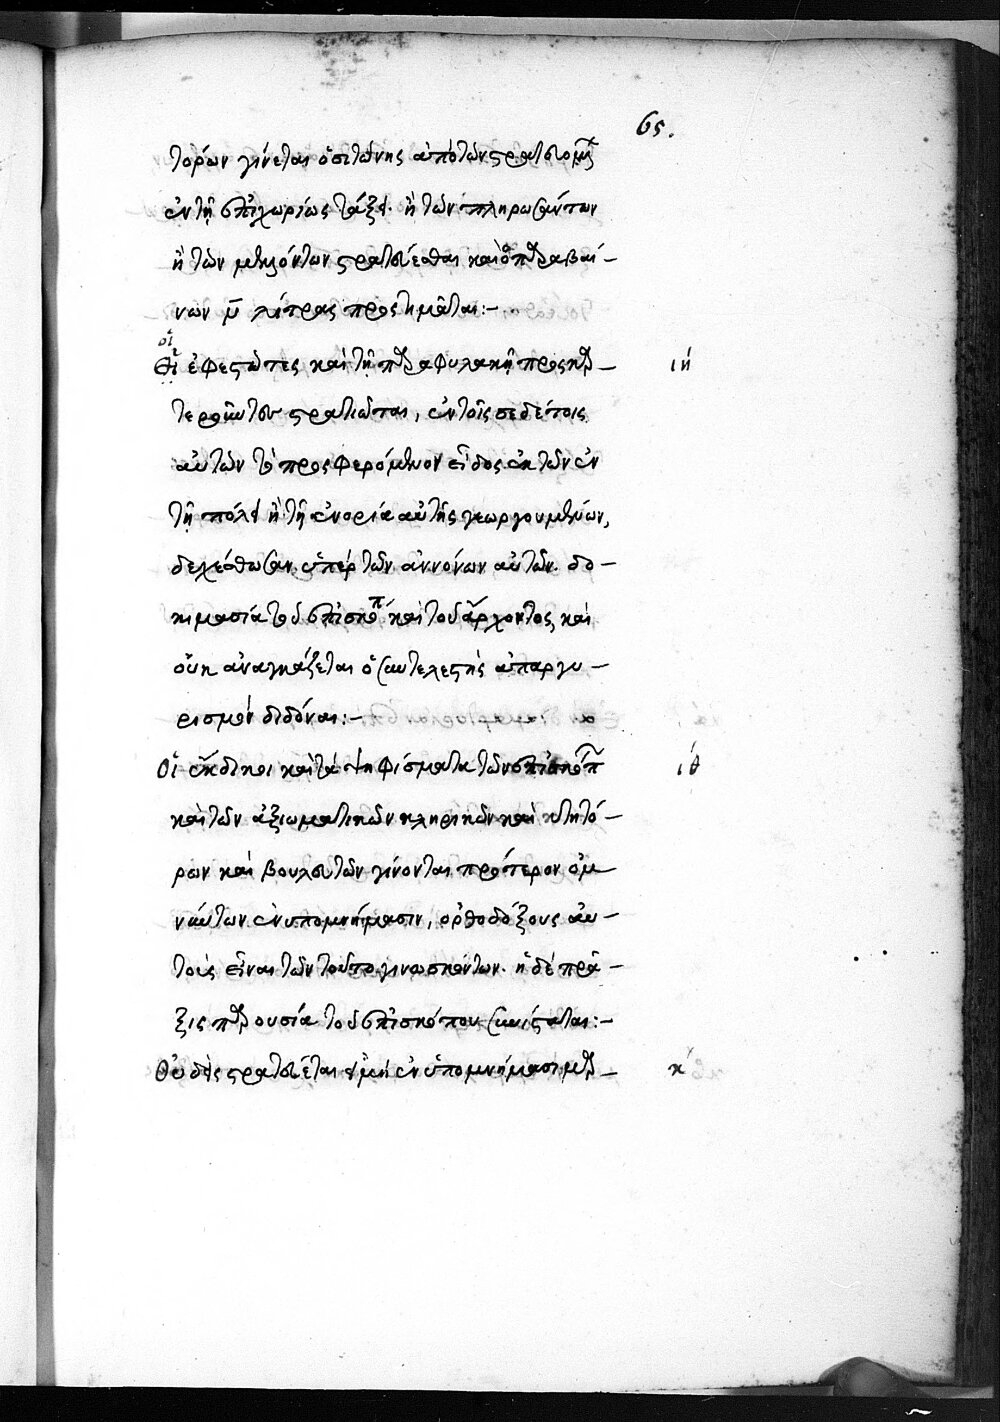 65.
τορων γίνεται ὁ σιτώνης ἀπὸ τῶν στρατευομ
ἐν τῇ ἐπιχωρίως τάξει. ἢ τῶν πληρωσάντων
ἢ τῶν μελλόντων στρατεύεσθαι καὶ ὁ παραβαί-
νων μ̅ λίτρας προστιμᾶται:-
οἱ
Οἱ ἐφεστῶτες καὶ τῇ παραφυλακῇ προσκαρ- ιή
τεροῦντες στρατιῶται, ἐν τοῖς σεδέτοις
αὐτῶν τὸ προσφερόμενον εἶδος ἐκ τῶν ἐν
τῇ πόλει ἢ τῇ ἐνορίᾳ αὐτῆς γεωργουμένων,
δεχέσθωσαν ὑπὲρ τῶν ἀννόνων αὐτῶν. δο-
κιμασίᾳ τοῦ ἐπισκόπ καὶ τοῦ ἄρχοντος, καὶ
οὐκ ἀναγκάζεται ὁ συντελεστὴς ἀπαργυ-
ρισμὸν διδόναι:-
Οἱ ἔκδικοι κατὰ ψηφίσματα τῶν ἐπισκόπ ιθ
καὶ τῶν ἀξιωματικῶν κληρικῶν καὶ κτητό-
ρων καὶ βουλευτῶν γίνονται πρότερον ὀμ-
νύντων ἐν ὑπομνήμασιν, ὀρθοδόξους αὐ-
τοὺς εἶναι τῶν τοῦτο γινωσκόντων. ἡ δὲ πρᾶ-
ξις παρουσίᾳ τοῦ ἐπισκόπου συνίσταται:-
Οὐδεὶς στρατεύεται εἰ μὴ ἐν ὑπομνήμασι μαρ- κ